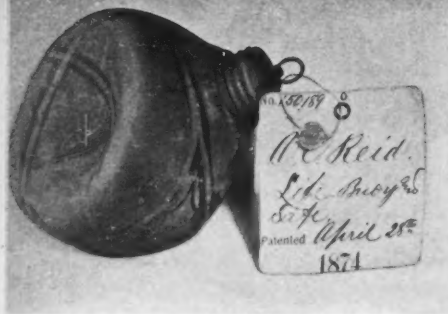 No. 150,189
A C Reid.
Life Buoy and
Safe
Patented April 28th
1874